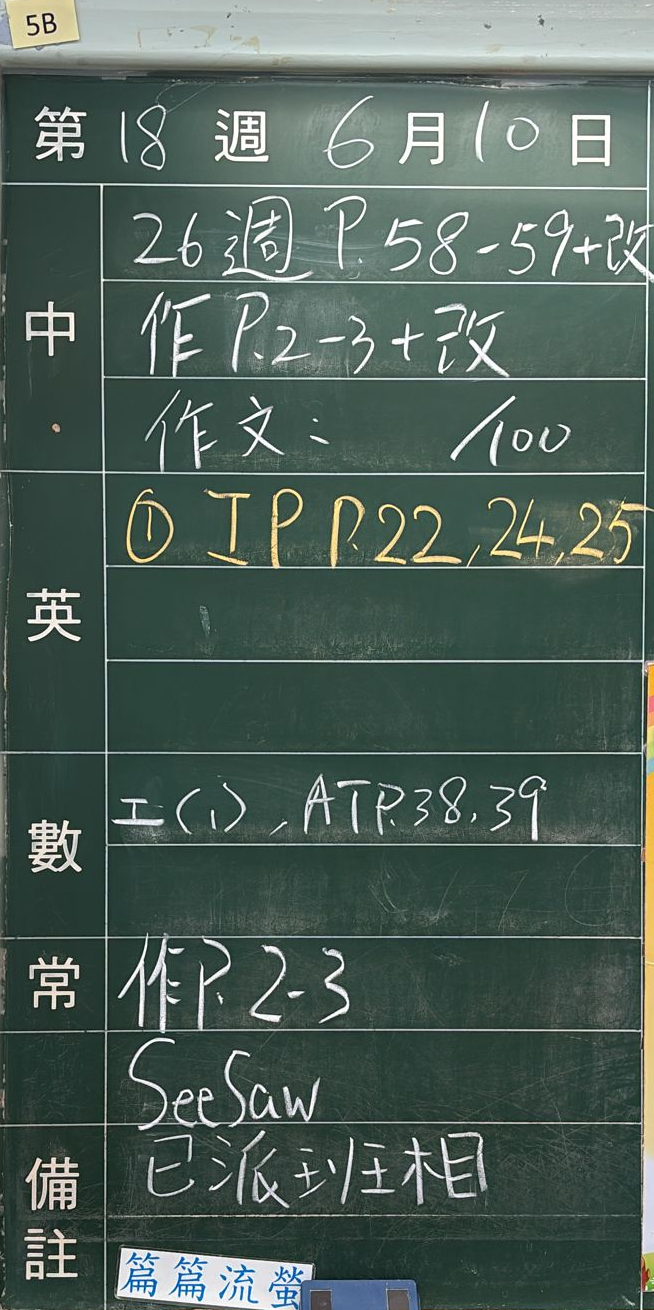 5B
第 18 週 6 月 10 日
中
26週 P. 58-59+改
作 P.2-3+改
作文: /100
英
① IP P.22,24,25
數
工(1), AT P.38,39
常
作P. 2-3
SeeSaw
備註
已派班相
篇篇流螢